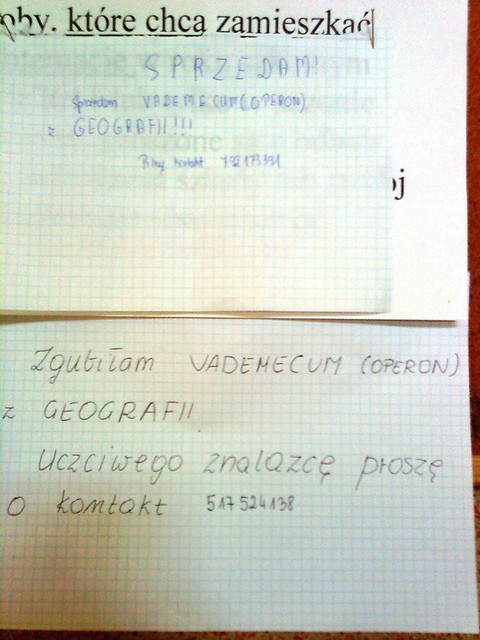 oby. które chcą zamieszkać
SPRZEDAM!
Sprzedam VADEMECUM (OPERON)
z GEOGRAFII!!!
Pilny kontakt 792173391
oj
Zgubiłam VADEMECUM (OPERON)
z GEOGRAFII.
Uczciwego znalazcę proszę
O kontakt 517524138